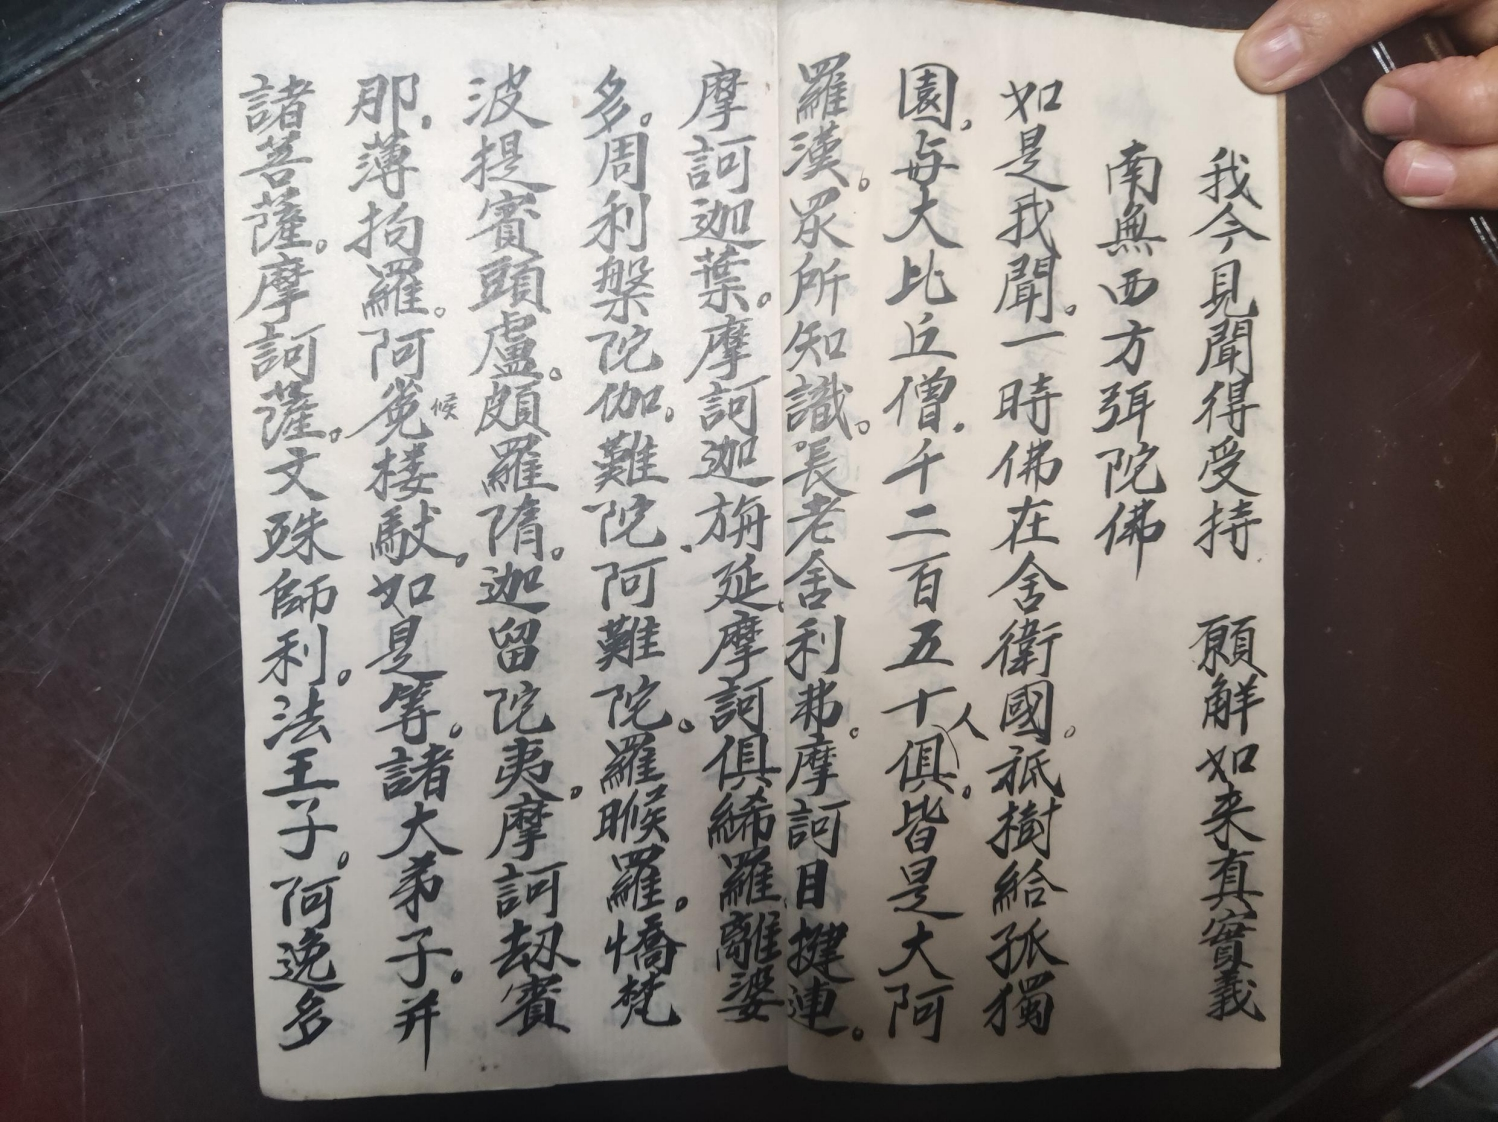 我今見聞得受持　願解如来真實義
南無西方弭陀佛
如是我聞。一時佛在舍衛國。祇樹給孤獨
園。与大比丘僧。千二百五十人俱。皆是大阿
羅漢。眾所知識。長老舍利弗。摩訶目揵連。
摩訶迦葉。摩訶迦旃延。摩訶俱絺羅。離婆
多。周利槃陀伽。難陀。阿難陀。羅睺羅。憍梵
波提。賓頭盧。頗羅隋。迦留陀夷。摩訶劫賓
那。薄拘羅。阿㝹候楼馱。如是等。諸大弟子。并
諸菩薩。摩訶薩。文殊師利。法王子。阿逸多